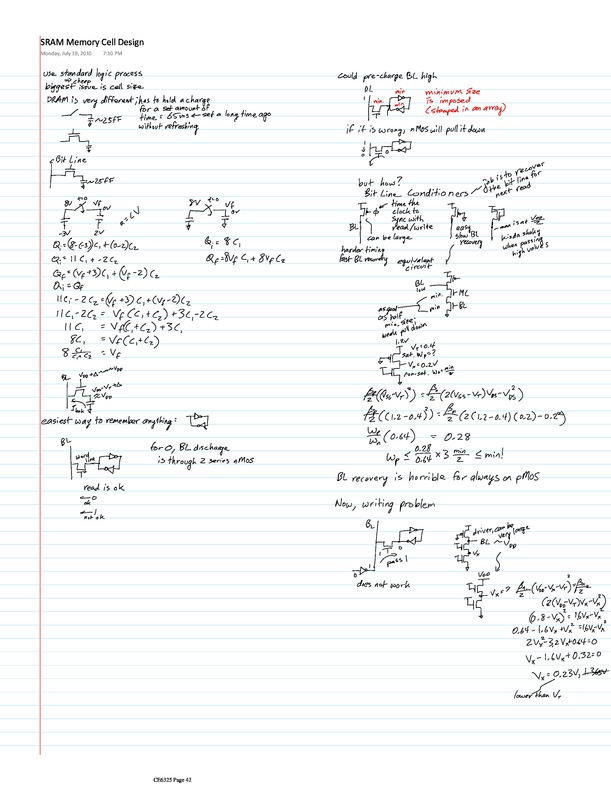 SRAM Memory Cell Design
Monday, July 19, 2010 7:10 PM
use standard logic process
→cheep
biggest issue is cell size
DRAM is very different; has to hold a charge
for a set amount of
time = 65ms ← set a long time ago
without refreshing
~25fF
Bit Line
~25fF
8V t=0 Vf 0V
-3V 2V
8V t=0 Vf 0V
Qi = (8-(-3))C₁ + (0-2)C₂
Qi = 11C₁ + -2C₂
Qf = (Vf+3)C₁ + (Vf-2)C₂
Qi = Qf
11C₁ - 2C₂ = (Vf+3)C₁ + (Vf-2)C₂
11C₁ - 2C₂ = Vf(C₁+C₂) + 3C₁ - 2C₂
11C₁ = Vf(C₁+C₂) + 3C₁
8C₁ = Vf(C₁+C₂)
8 C₁/(C₁+C₂) = Vf
Qi = 8C₁
Qf = 8Vf C₁ + 8Vf C₂
BL
easiest way to remember anything:
BL
word line
for 0, BL discharge
is through 2 series nMOS
read is ok
←0
ok
←1
not ok
could pre-charge BL high
BL
1
min
min
min
minimum size
is imposed
(stamped in an array)
if it is wrong, nMOS will pull it down
1
0
but how?
Bit Line Conditioners
job is to recover
the bit line for
next read
time the
clock to
sync with
read/write
BL
can be large
harder timing
fast BL recovery
easy
slow BL
recovery
kinda shaky
when passing
high values
equivalent
circuit
BL
low
min.
min.
BL
as good
as half
min. size;
weak pull down
1.2V
Vt = 0.4
sat. Wp = ?
Vx = 0.2V
non-sat. Wn = min/2
βp/2 ((VSG-VT)²) = βn/2 (2(VGS-VT)VDS - VDS²)
βp/2 ((1.2-0.4)²) = βn/2 (2(1.2-0.4)(0.2) - 0.2²)
Wp/Wn (0.64) = 0.28
Wp ≤ 0.28/0.64 × 3 min/2 ≤ min!
BL recovery is horrible for always on pMOS
Now, writing problem
BL
1
0
pass 1
1
does not work
driver, can be
very large
BL ~VDD
Vx
VDD
Vx = ?
(2(VGS-VT)Vx-Vx²)
(0.8-Vx)² = 1.6Vx-Vx²
0.64-1.6Vx+Vx² = 1.6Vx-Vx²
2Vx²-3.2Vx+0.64=0
Vx-1.6Vx+0.32=0
Vx = 0.23V, 1.365V
lower than VT
CE6325 Page 42